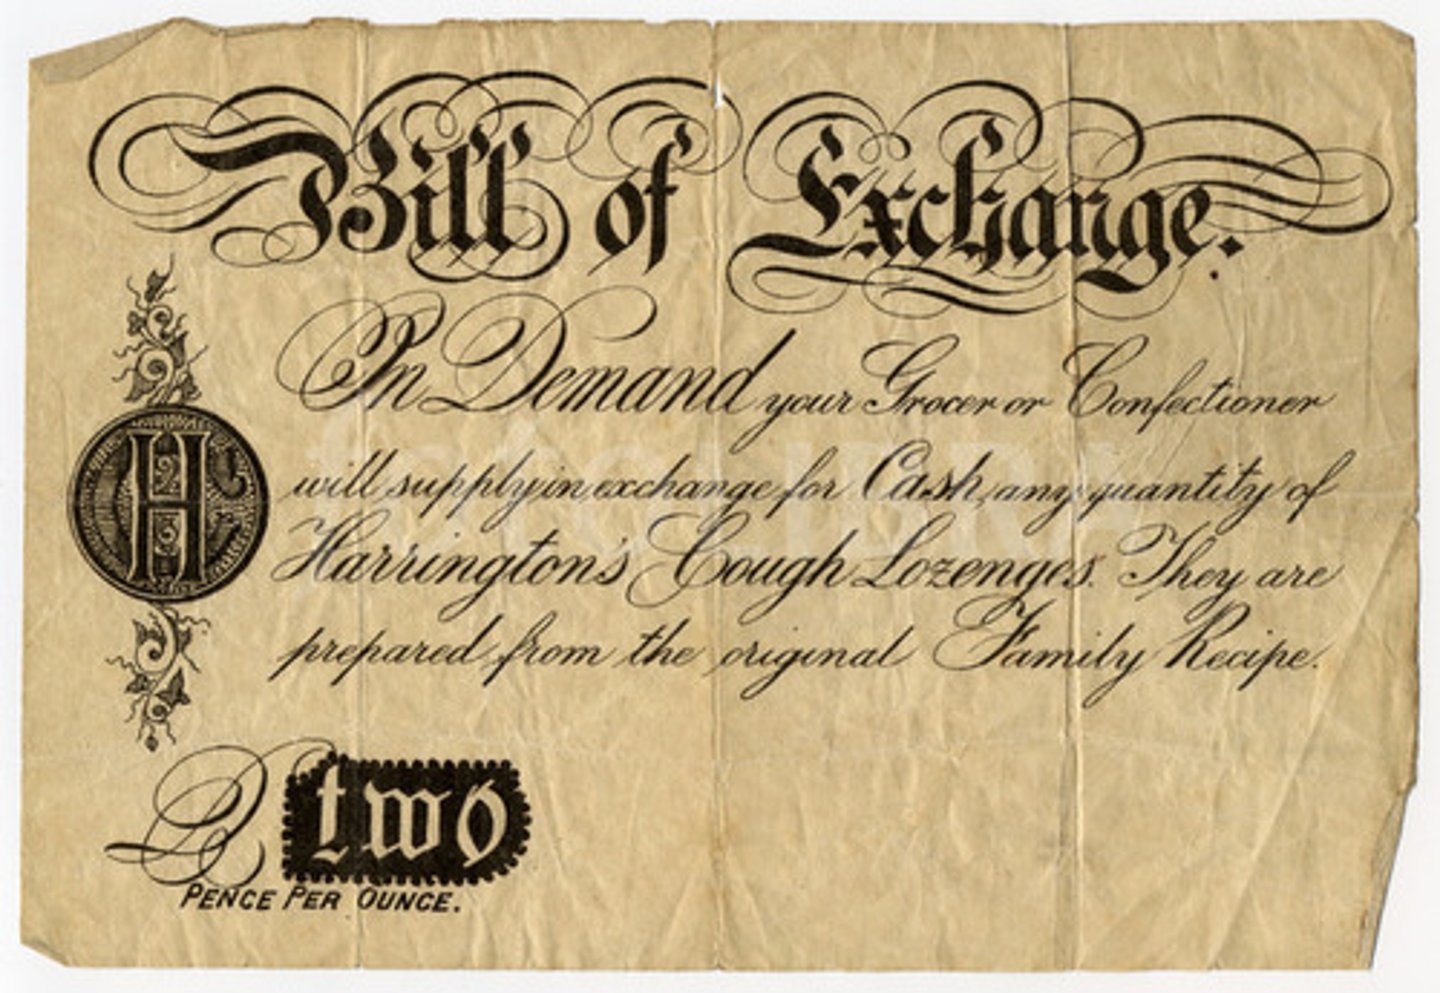 Bill of Exchange.
On Demand your Grocer or Confectioner
will supply in exchange for Cash, any quantity of
Harrington's Cough Lozenges. They are
prepared from the original Family Recipe.
H
£ two
PENCE PER OUNCE.